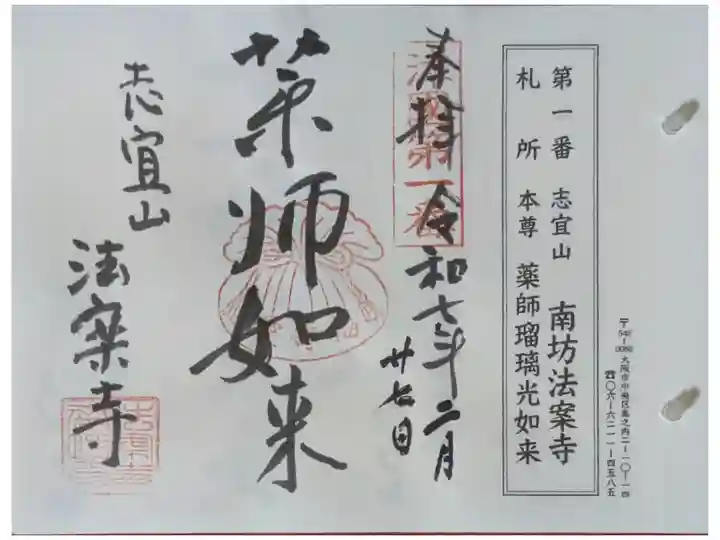 第一番 志宜山 南坊法案寺
札所 本尊 薬師瑠璃光如来
大阪市中央区島之内二-一〇-一四
☎〇六-六二一一-四五八五
奉拝 令和七年二月
廿七日
薬師如来
志宜山
法案寺